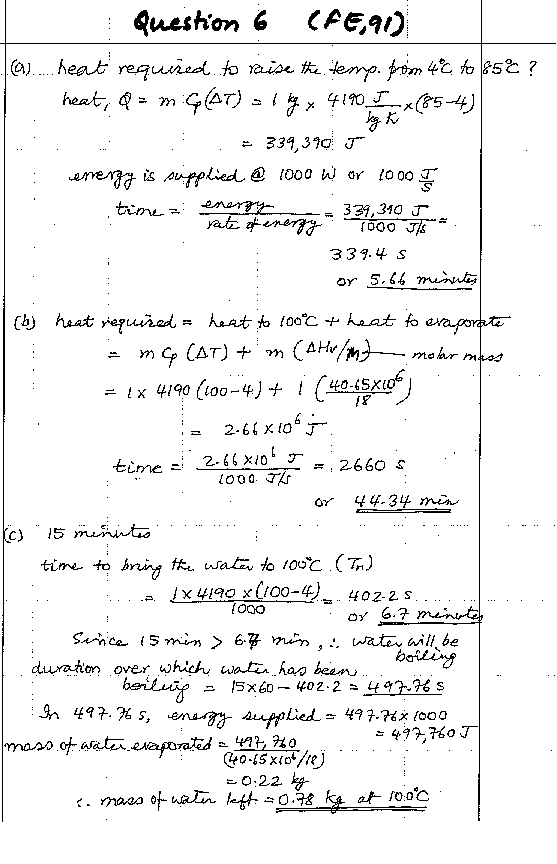 Question 6 (FE,91)
(a) heat required to raise the temp. from 4°C to 85°C ?
heat, Q = m Cp(ΔT) = 1 kg x 4190 J/kg K x (85-4)
= 339,390 J
energy is supplied @ 1000 W or 1000 J/S
time = energy/rate of energy = 339,390 J/1000 J/s =
339.4 s
or 5.66 minutes
(b) heat required = heat to 100°C + heat to evaporate
= m Cp (ΔT) + m (ΔHv/M) — molar mass
= 1 x 4190 (100-4) + 1 (40.65x10^6/18)
= 2.66 x10^6 J
time = 2.66 x10^6 J/1000 J/s = 2660 s
or 44.34 min
(c) 15 minutes
time to bring the water to 100°C (Tn)
= 1x4190 x(100-4)/1000 = 402.2 s
or 6.7 minutes
Since 15 min > 6.7 min, ∴ water will be
boiling
duration over which water has been
boiling = 15x60 - 402.2 = 497.76 s
In 497.76 s, energy supplied = 497.76 x 1000
= 497,760 J
mass of water evaporated = 497,760/(40.65x10^6/18)
= 0.22 kg
∴ mass of water left = 0.78 kg at 100°C